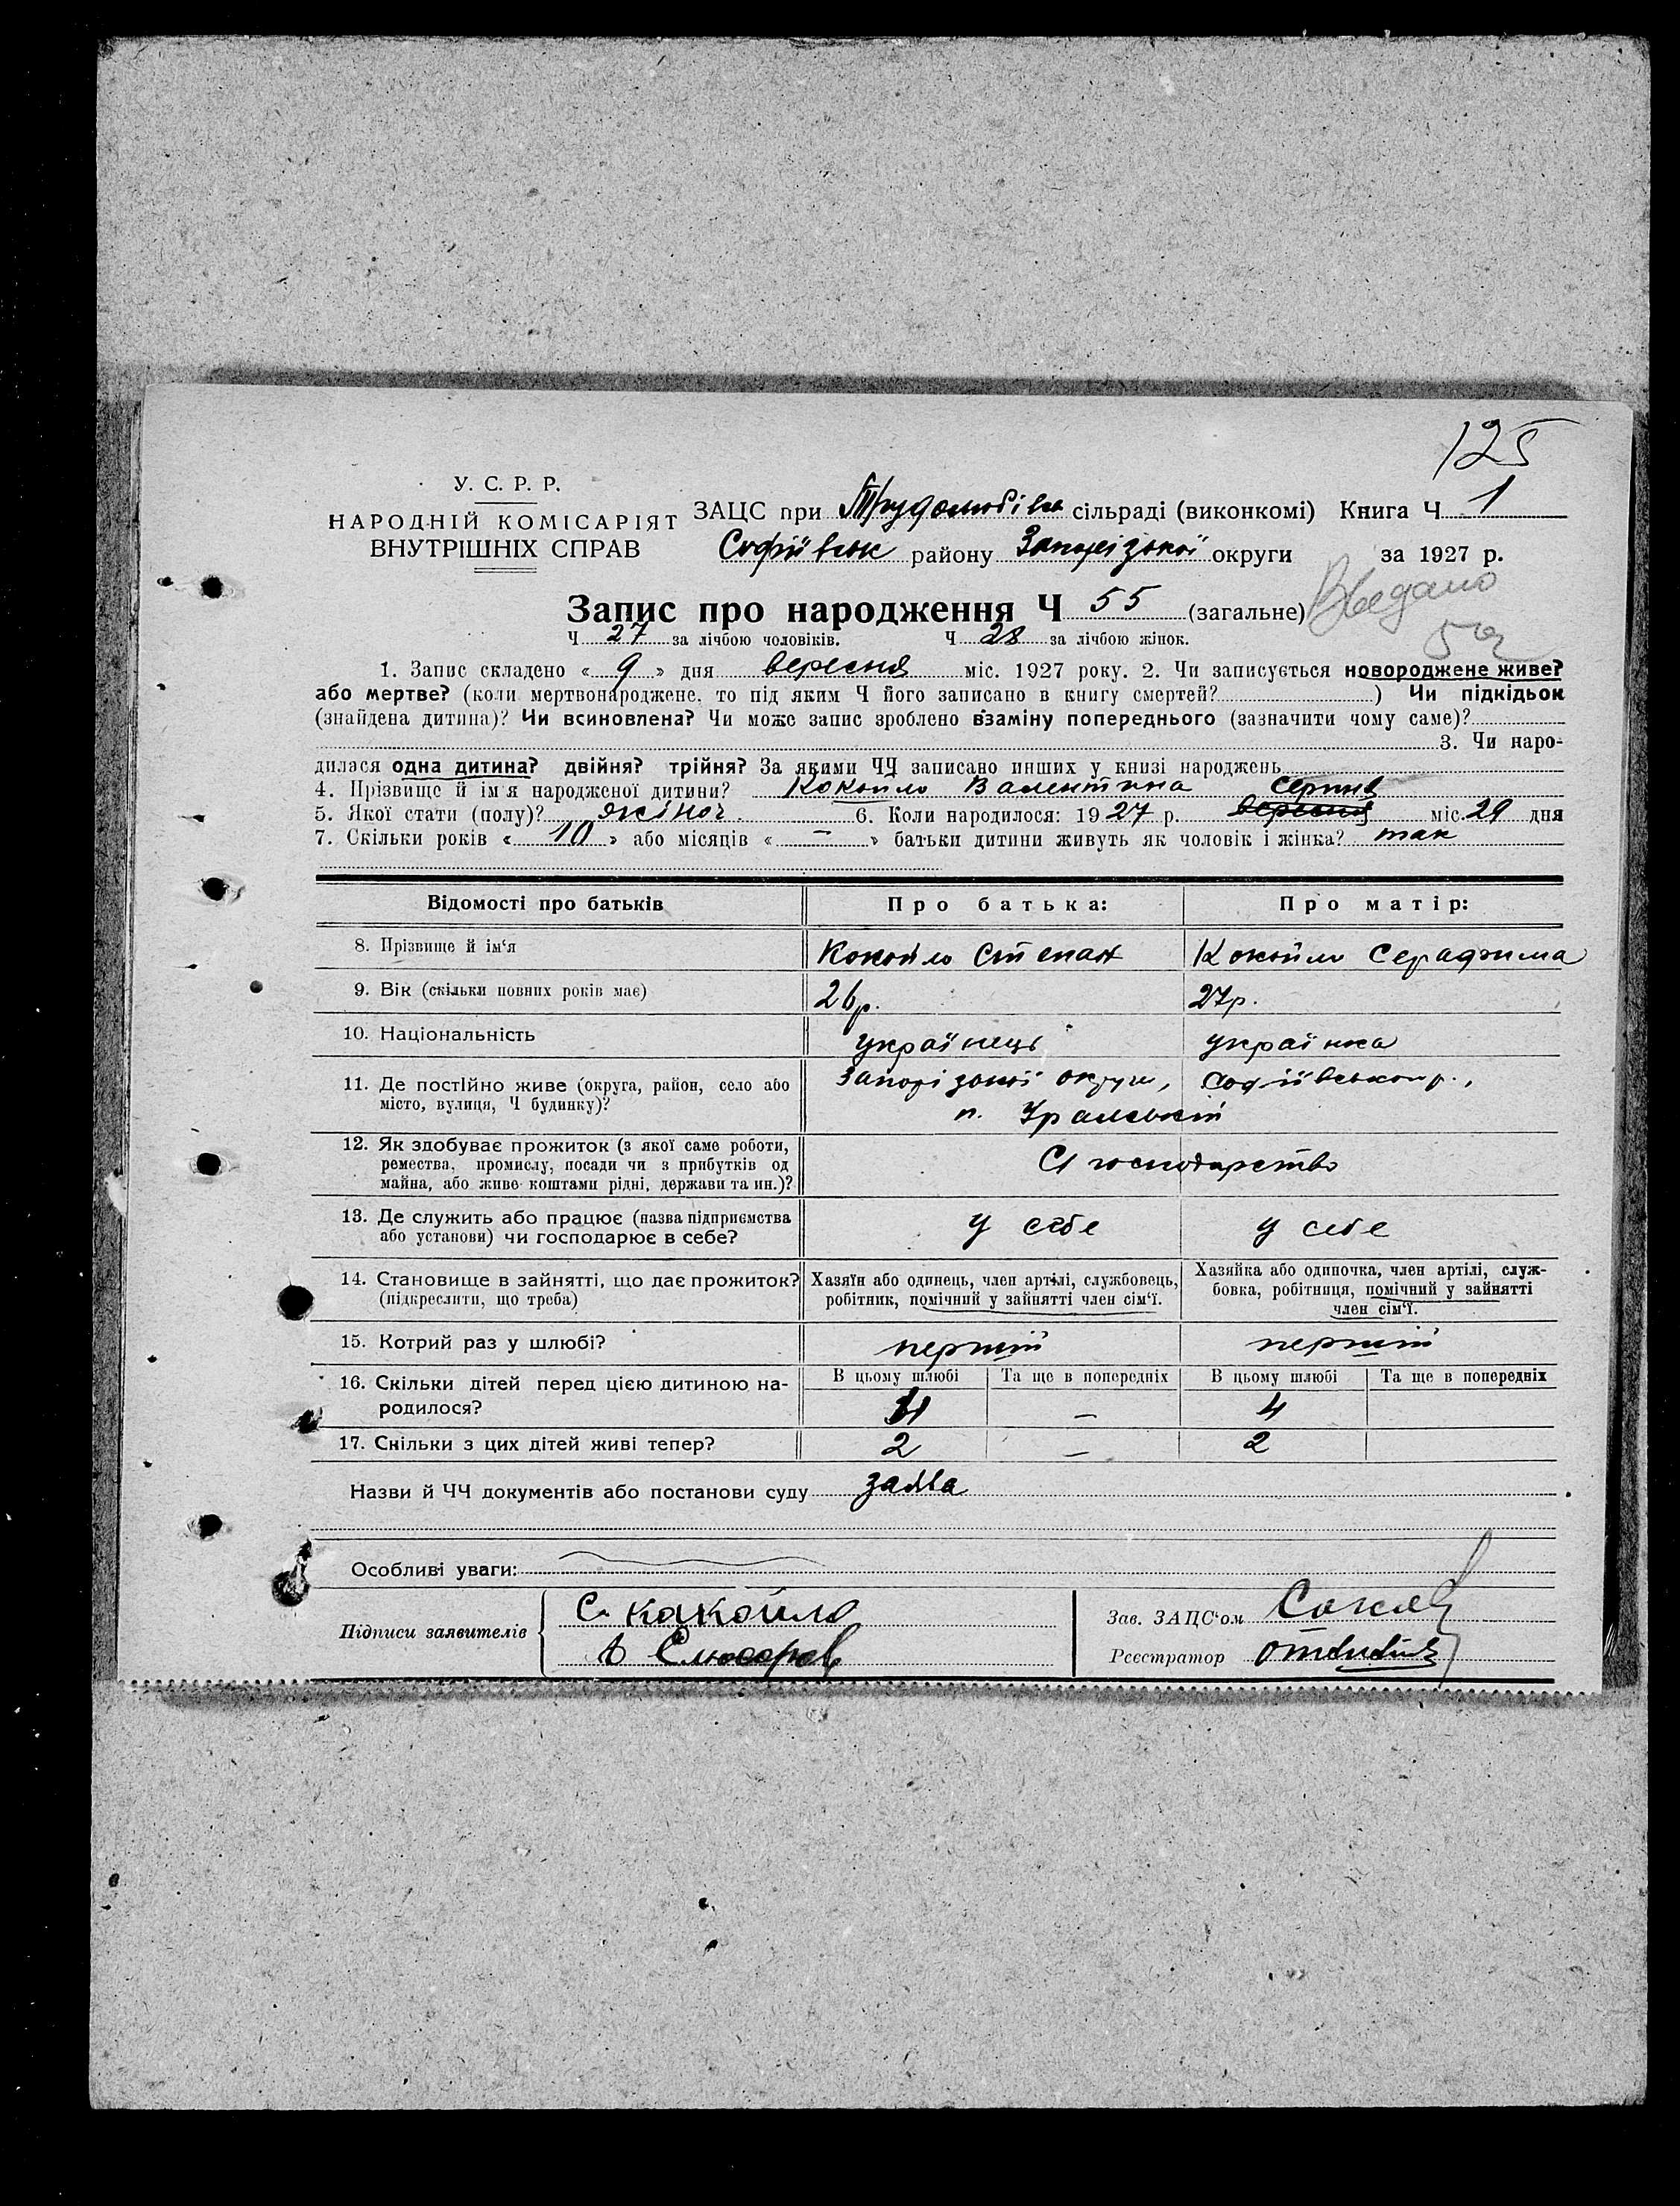 125
У. С. Р. Р.
НАРОДНІЙ КОМІСАРІЯТ
ВНУТРІШНІХ СПРАВ
ЗАЦС при Трудолюбівк сільраді (виконкомі) Книга Ч 1
Софіївськ району Запорізької округи за 1927 р.
Запис про народження Ч 55 (загальне)
Ч 27 за лічбою чоловіків. Ч 28 за лічбою жінок.
1. Запис складено « 9 » дня вересня міс. 1927 року. 2. Чи записується новороджене живе?
або мертве? (коли мертвонароджене, то під яким Ч його записано в книгу смертей? ) Чи підкідьок
(знайдена дитина)? Чи всиновлена? Чи може запис зроблено взаміну попереднього (зазначити чому саме)?
3. Чи наро-
дилася одна дитина? двійня? трійня? За якими ЧЧ записано инших у книзі народжень
4. Прізвище й ім'я народженої дитини? Кокойло Валентина
серпня
5. Якої стати (полу)? жіноч. 6. Коли народилося: 1927 р. вересня міс. 29 дня
7. Скільки років « 10 » або місяців « – » батьки дитини живуть як чоловік і жінка? так
Відомості про батьків Про батька: Про матір:
8. Прізвище й ім'я Кокойло Степан Кокойло Серафима
9. Вік (скільки повних років має) 26р. 27р.
10. Національність українець українка
11. Де постійно живе (округа, район, село або
місто, вулиця, Ч будинку)?
Запорізької округи, Софіївського р.,
п. Уральскій
12. Як здобуває прожиток (з якої саме роботи,
ремества, промислу, посади чи з прибутків од
майна, або живе коштами рідні, держави та ин.)?
Сг господарство
13. Де служить або працює (назва підприємства
або установи) чи господарює в себе?
у себе у себе
14. Становище в зайнятті, що дає прожиток?
(підкреслити, що треба)
Хазяїн або одинець, член артілі, службовець,
робітник, помічний у зайнятті член сім'ї.
Хазяйка або одиночка, член артілі, служ-
бовка, робітниця, помічний у зайнятті
член сім'ї.
15. Котрий раз у шлюбі? перший перший
16. Скільки дітей перед цією дитиною на-
родилося?
В цьому шлюбі Та ще в попередніх В цьому шлюбі Та ще в попередніх
4 – 4
17. Скільки з цих дітей живі тепер? 2 – 2
Назви й ЧЧ документів або постанови суду заява
Особливі уваги:
Підписи заявителів
С. Какойло
Слюсарев
Зав. ЗАЦС'ом
Реєстратор